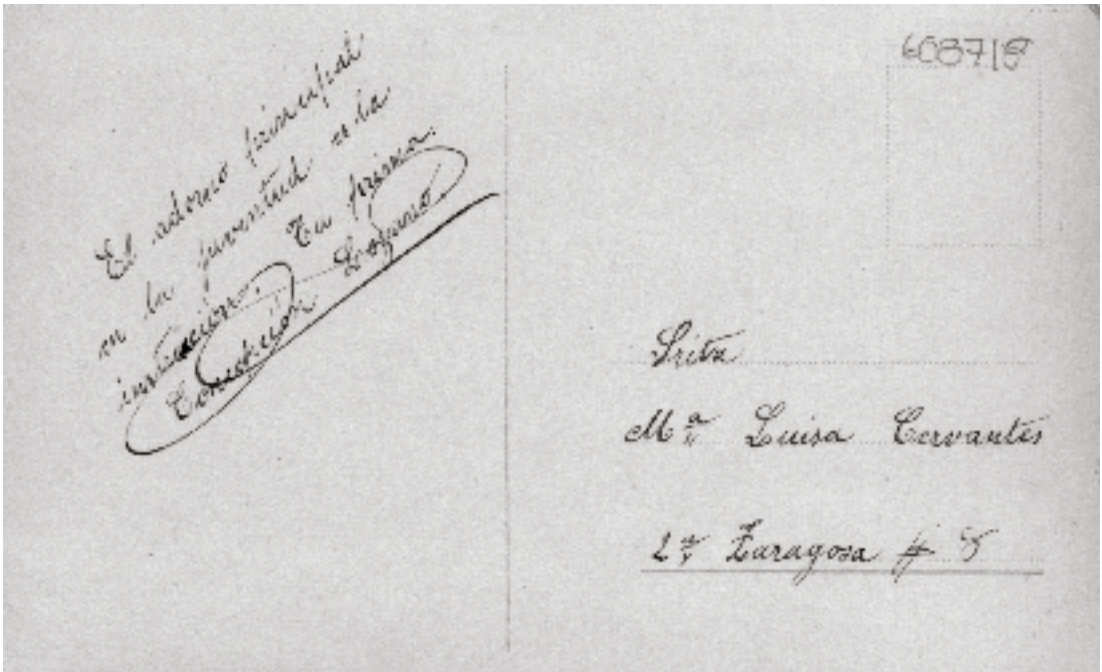 El adorno principal
en la juventud es la
instrucción. Tu prima.
Concepción Lozano.
608718
Srita
Mª Luisa Cervantes
2ª Zaragosa # 8